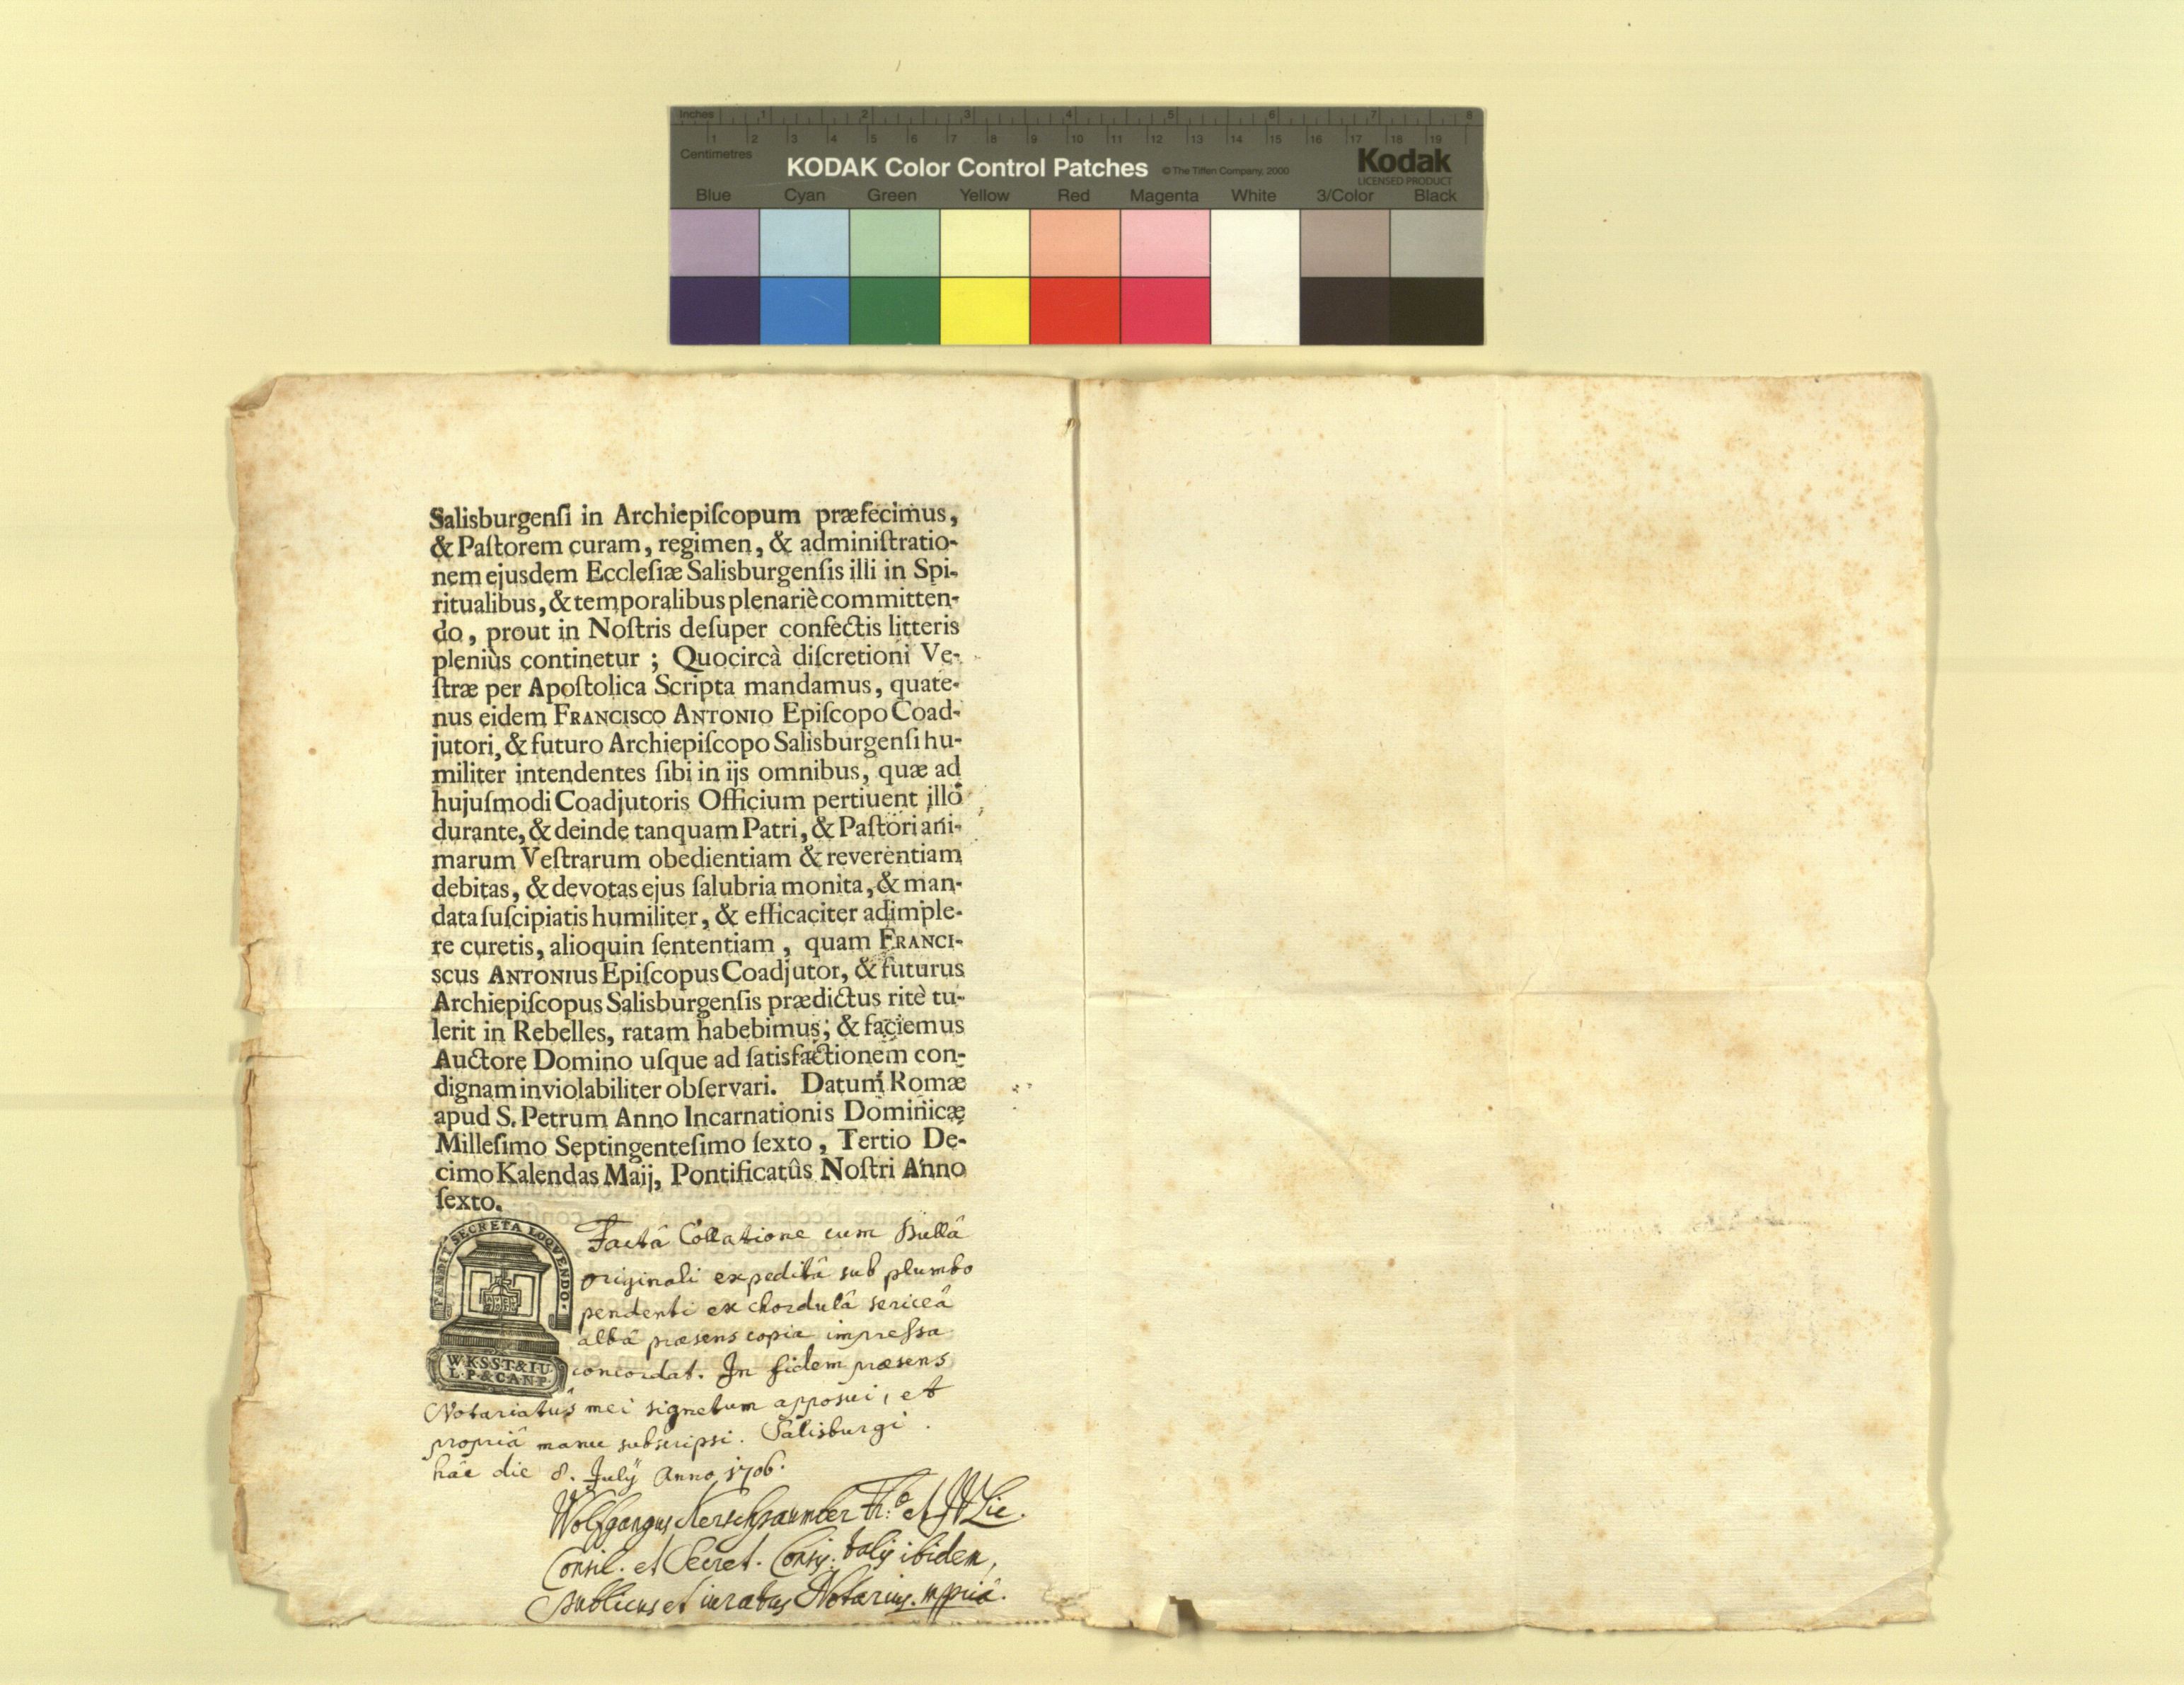 Inches 1 2 3 4 5 6 7 8
1 2 3 4 5 6 7 8 9 10 11 12 13 14 15 16 17 18 19
Centimetres
KODAK Color Control Patches © The Tiffen Company, 2000 Kodak
LICENSED PRODUCT
Blue Cyan Green Yellow Red Magenta White 3/Color Black
Salisburgenſi in Archiepiſcopum præfecimus,
& Paſtorem curam, regimen, & adminiſtratio-
nem ejusdem Eccleſiæ Salisburgenſis illi in Spi-
ritualibus, & temporalibus plenariè committen-
do, prout in Noſtris deſuper confectis litteris
pleniùs continetur ; Quocircà diſcretioni Ve-
ſtræ per Apoſtolica Scripta mandamus, quate-
nus eidem FRANCISCO ANTONIO Epiſcopo Coad-
jutori, & futuro Archiepiſcopo Salisburgenſi hu-
militer intendentes ſibi in ijs omnibus, quæ ad
hujuſmodi Coadjutoris Officium pertiuent illô
durante, & deinde tanquam Patri, & Paſtori ani-
marum Veſtrarum obedientiam & reverentiam
debitas, & devotas ejus ſalubria monita, & man-
data ſuſcipiatis humiliter, & efficaciter adimple-
re curetis, alioquin ſententiam, quam FRANCI-
scus ANTONIus Epiſcopus Coadjutor, & futurus
Archiepiſcopus Salisburgenſis prædictus ritè tu-
lerit in Rebelles, ratam habebimus; & faciemus
Auctore Domino uſque ad ſatisfactionem con-
dignam inviolabiliter obſervari. Datum Romæ
apud S. Petrum Anno Incarnationis Dominicæ
Milleſimo Septingenteſimo ſexto, Tertio De-
cimo Kalendas Maij, Pontificatûs Noſtri Anno
ſexto.
PANDIT SECRETA LOQVENDO.
W.K.S.S.T.&I.U.
L.P.&C.A.N.P.
Factâ Collatione cum Bullâ
originali expeditâ sub plumbo
pendenti ex chordulâ sericeâ
albâ præsens copia impreſsa
concordat. In fidem præsens
Notariatûs mei signetum apposui, et
propriâ manu subscripsi. Salisburgi
hâc die 8. Julÿ Anno 1706.
Wolfgangus Kerschpaumber Lic.
Consil. et Secret. ibidem,
publicus et iuratus Notarius. mpriâ.